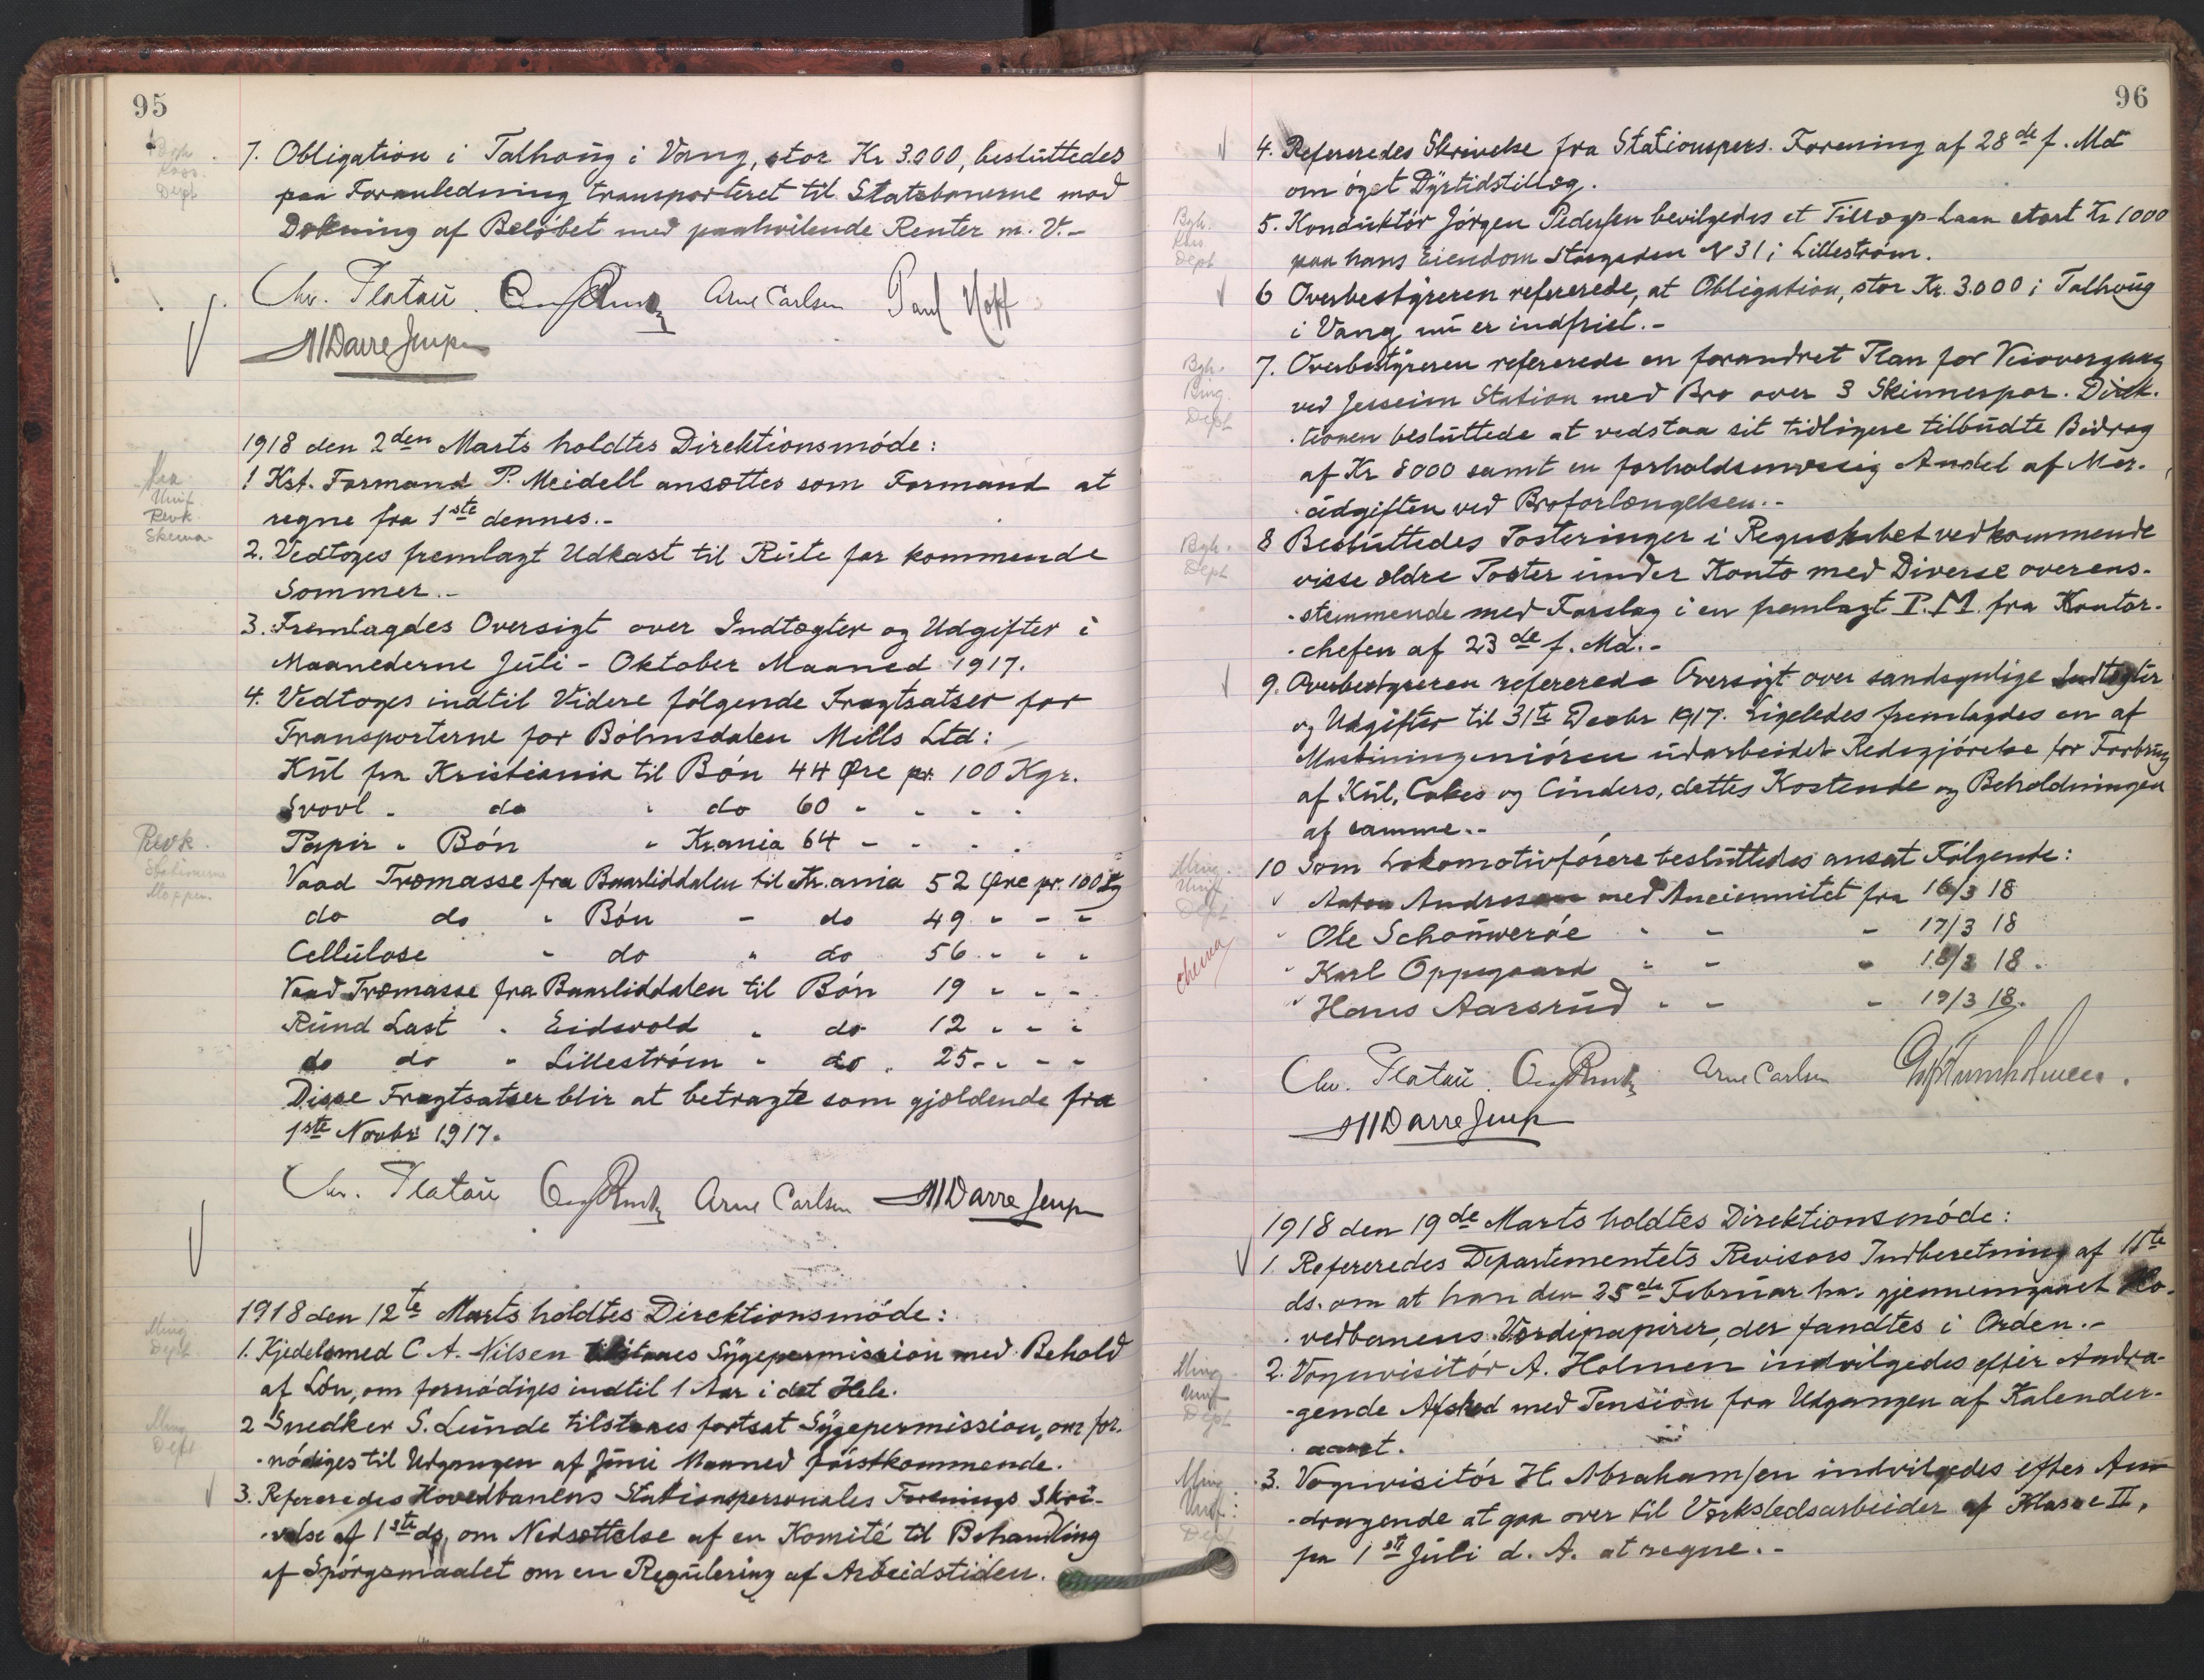 95
7. Obligation i Talhoug i Vang, stor Kr 3.000, besluttedes
paa Foranledning transporteret til Statsbanerne mod
Dekning af Beløbet med paahvilende Renter m. V.-
Chr. Platou Arne Carlsen Paul Hoff
1918 den 2den Marts holdtes Direktionsmöde:
1 Kst. Formand P. Meidell ansættes som Formand at
regne fra 1ste dennes.-
2. Vedtoges fremlagt Udkast til Rute for kommende
Sommer.-
Revk.
Skema
3. Fremlagdes Oversigt over Indtægter og Udgifter i
Maanederne Juli - Oktober Maaned 1917.
4. Vedtoges indtil Videre følgende Fragtsatser for
Transporterne for Bøhnsdalen Mills Ltd:
Kul fra Kristiania til Bön 44 Øre pr. 100 Kgr.
Svovl - do " do 60 - - - -
Papir " Bön " Kr.ania 64 - - - -
Vaad Træmasse fra Baarliddalen til Kr.ania 52 Øre pr. 100 Kg
do do " Bön - do 49 " - -
Cellulose " do " do 56 - - -
Vaad Træmasse fra Baarliddalen til Bön 19 - - -
Rund Last - Eidsvold " do 12 - - -
do do " Lilleström - do . 25 - - -
Revk.
Stationerne
Mappen
Disse Fragtsatser blir at betragte som gjældende fra
1ste Novbr 1917.
Chr. Platou Arne Carlsen
1918 den 12te Marts holdtes Direktionsmöde:
1. Kjedelsmed C. A. Nilsen tilstaaes Sygepermission med Behold
af Lön, om fornödiges indtil 1 Aar i det Hele.
2 Snedker S. Lunde tilstaaes fortsat Sygepermission, om for-
-nödiges til Udgangen af Juni Maaned förstkommende.
3. Refereredes Hovedbanens Stationspersonales Forenings Skri-
-velse af 1ste ds, om Nedsættelse af en Komité til Behandling
af Spörgsmaalet om en Regulering af Arbeidstiden.
96
4. Refereredes Skrivelse fra Stationspers. Forening af 28de f. Md
om öget Dyrtidstillæg.
5. Konduktör Jörgen Pedersen bevilgedes et Tillægs-Laan stort Kr 1000
paa hans Eiendom Storgaden N 31 i Lilleström.
Bgh.
Kass.
Dept
6 Overbestyreren refererede, at Obligation, stor Kr. 3.000 i Talhoug
i Vang nu er indfriet.-
7. Overbestyreren refererede en forandret Plan for Veiovergang
ved Jessheim Station med Bro over 3 Skinnespor. Direk-
-tionen besluttede at vedstaa sit tidligere tilbudte Bidrag
af Kr 8000 samt en forholdsmæssig Andel af Mer-
-udgiften ved Broforlængelsen.-
Bgh.
Bing.
Dept
8 Besluttedes Posteringer i Regnskabet vedkommende
visse ældre Poster under Konto med Diverse overens-
-stemmende med Forslag i en fremlagt P.M. fra Kontor-
-chefen af 23de f. Md.-
Bgh.
Dept
9. Overbestyreren refererede Oversigt over sandsynlige Indtægter
og Udgifter til 31te Decbr 1917. Ligeledes fremlagdes en af
Maskiningeniören udarbeidet Redegjörelse for Forbrug
af Kul, Cokes og Cinders, dettes Kostende og Beholdningen
af samme.-
10 Som Lokomotivförere besluttedes ansat Fölgende:
Anton Andresen med Anciennitet fra 16/3 18
Ole Schouweröe " - - 17/3 18
Karl Oppegaard " - - 18/3 18.
Hans Aarsrud " - - 19/3 18.
Ming.
Unif
Dept
Skema
Chr. Platou Arne Carlsen
1918 den 19de Marts holdtes Direktionsmöde:
1. Refereredes Departementets Revisors Indberetning af 11te
ds. om at han den 25de Februar har gjennemgaaet Ho-
-vedbanens Værdipapirer, der fandtes i Orden.-
2. Vognvisitör A. Holmen indvilgedes efter Andra-
-gende Afsked med Pension fra Udgangen af Kalender-
-aaret.
Ming
Unif
Dept
3. Vognvisitör H. Abrahamsen indvilgedes efter An-
-dragende at gaa over til Værkstedsarbeider af Klasse II,
fra 1ste Juli d. A. at regne.-
Ming
Unif.
Dept